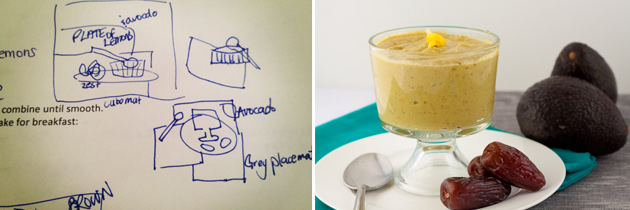 & avocado
PLATE OF
LEMONS
emons
ZEST
combine until smooth.
ake for breakfast:
Avocado
Grey placemat
BROWN